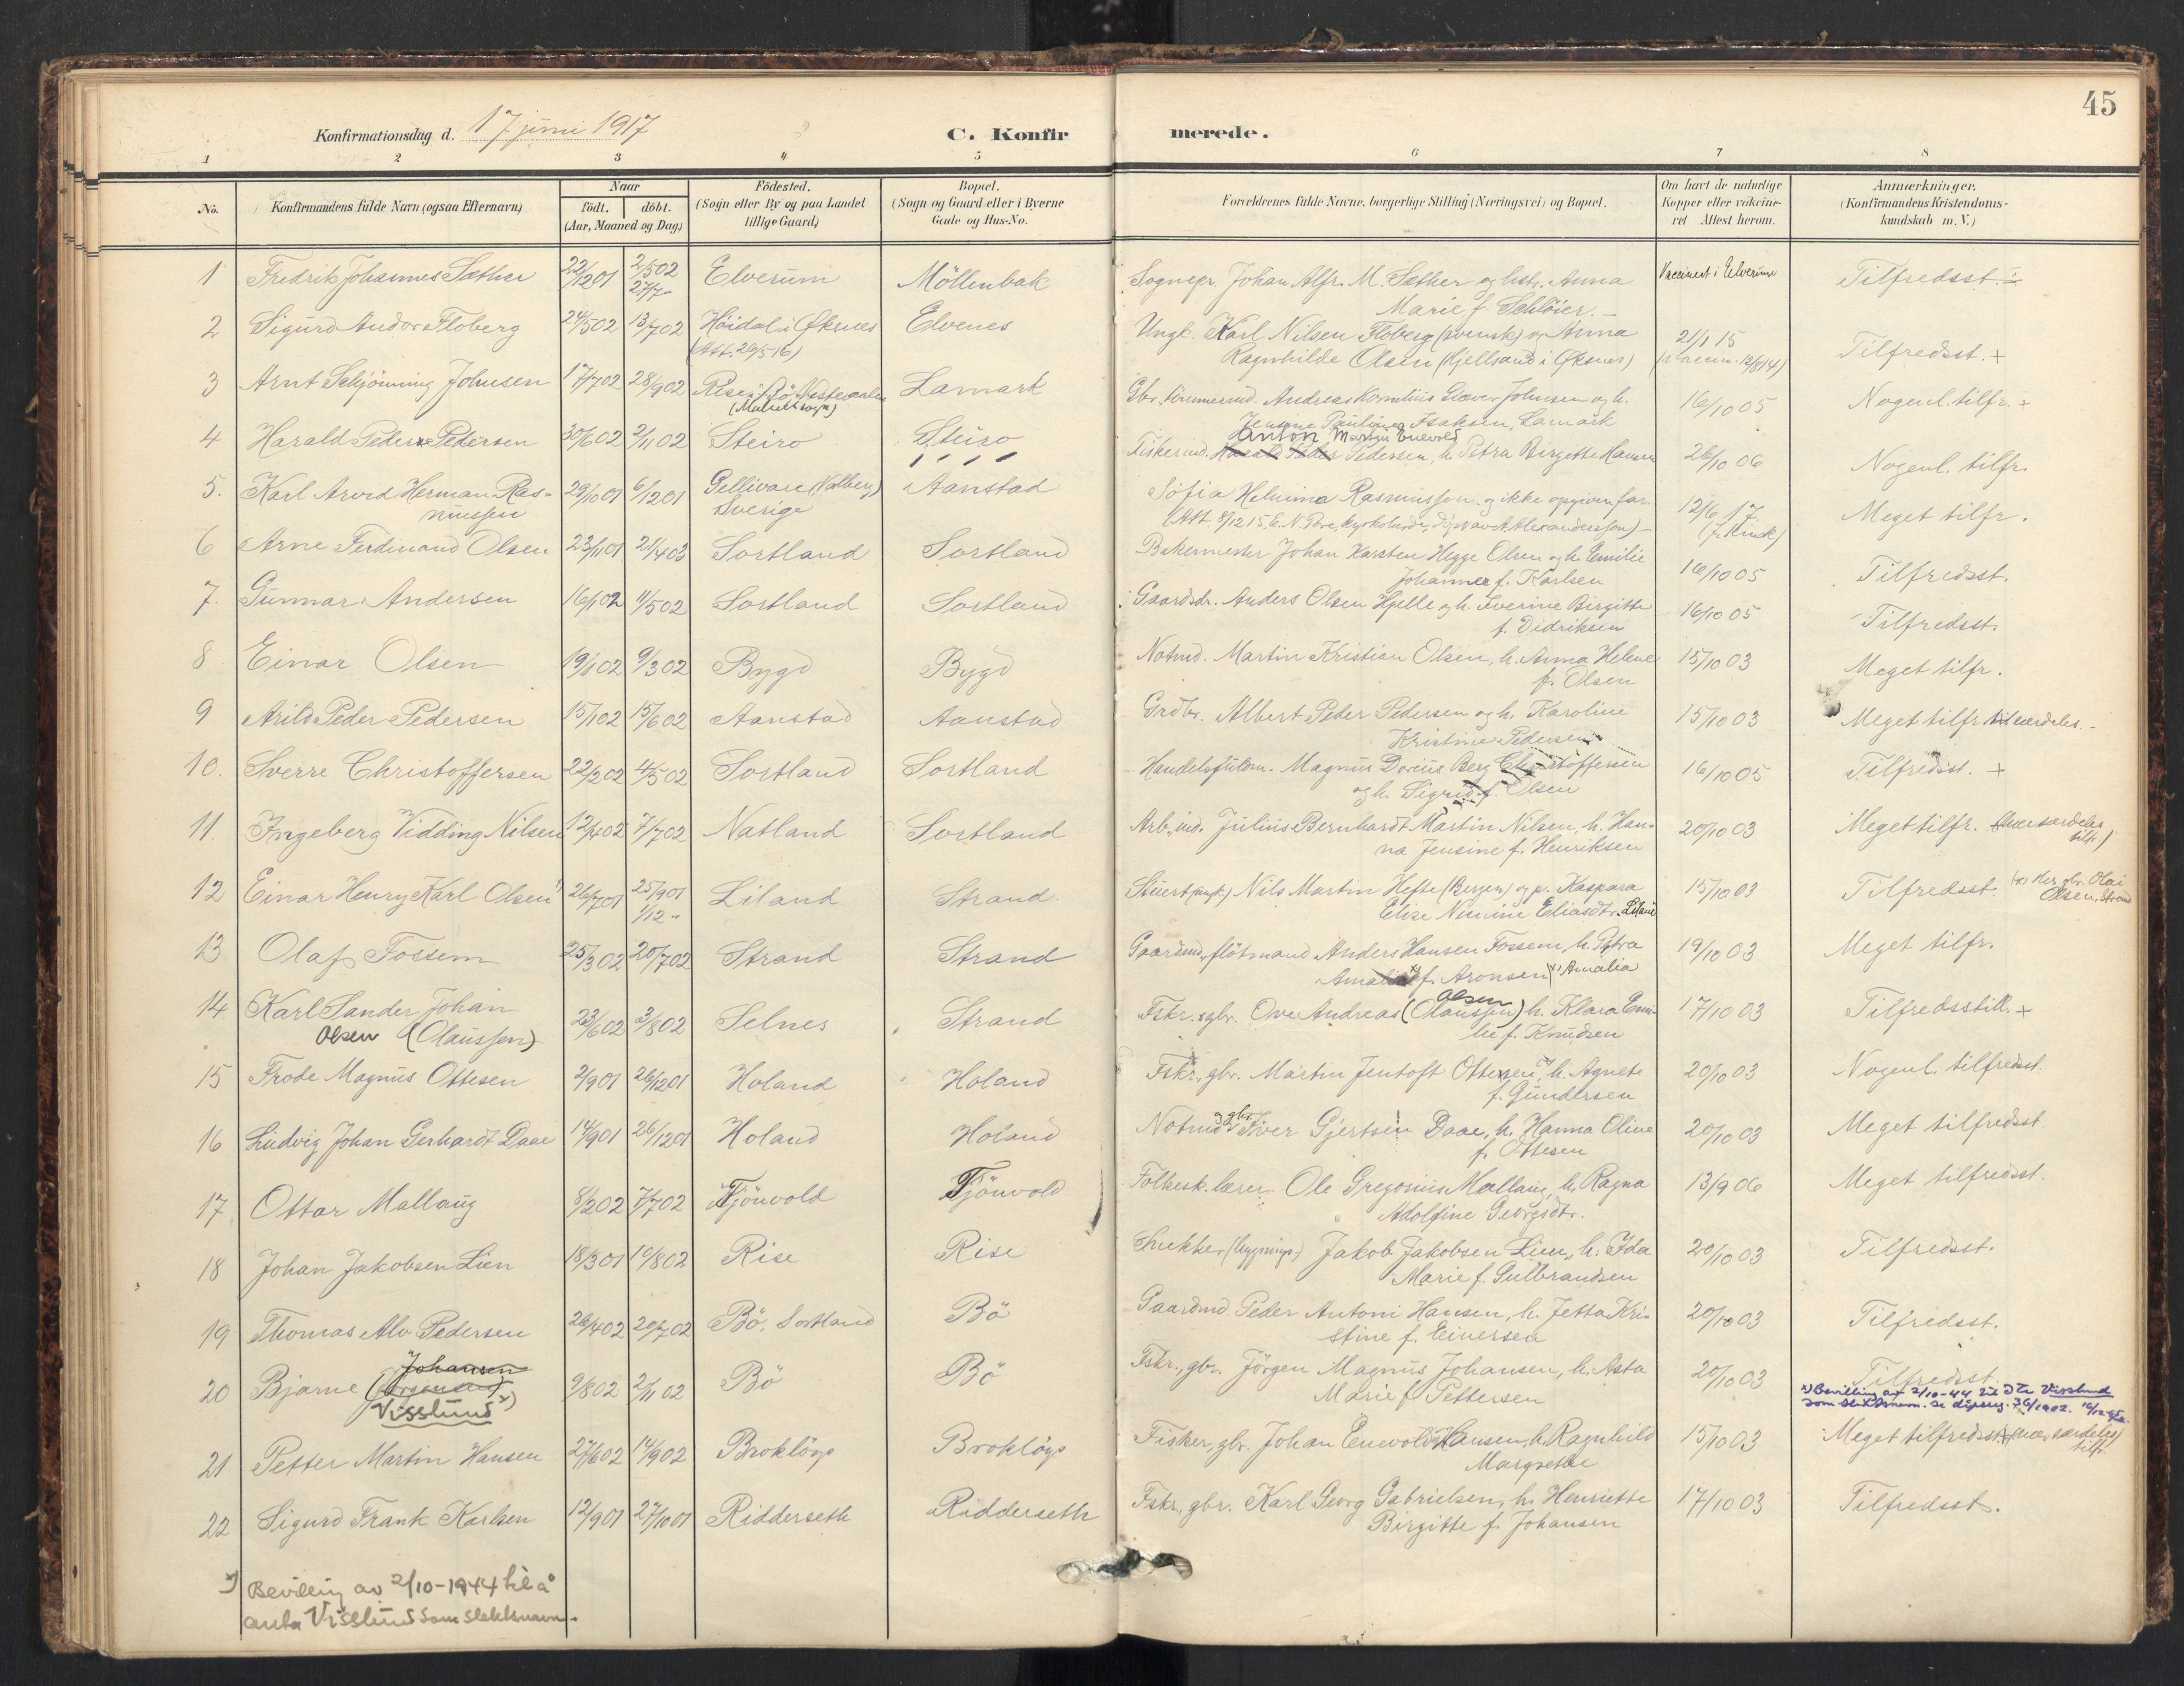 45
Konfirmationsdag d. 17 juni 1917
C. Konfirmerede.
1 2 3 4 5 6 7 8
No.
Konfirmandens fulde Navn (ogsaa Efternavn)
Naar
födt. döbt.
(Aar, Maaned og Dag)
Födested.
(Sogn eller By og paa Landet
tillige Gaard)
Bopæl.
(Sogn og Gaard eller i Byerne
Gade og Hus-No.
Forældrenes fulde Navne, borgerlige Stilling (Næringsvei) og Bopæl.
Om havt de naturlige
Kopper eller vakcine-
ret Attest herom.
Anmærkninger.
(Konfirmandens Kristendoms-
kundskab m. V.)
1 Fredrik Johannes Sæther 22/12 01 2/5 02 27/7 - Elverum Möllenbak Sognepr. Johan Alfr. M. Sæther og hstr. Anna Vaccinert i Elverum Tilfredsst.
Marie f. Schlöier.
2 Sigurd Andor Floberg 24/5 02 13/7 02 Höidal i Øksnes Elvenes Ungk. Karl Nilsen Floberg (svensk) og Anna 21/1 15 Tilfredsst. +
(Att. 26/5 16) Ragnhilde Olsen (Kjellsand i Øksnes) (vaccin. 12/8 14)
3 Arnt Schjönning Johnsen 17/7 02 28/9 02 Rise i Bö Vesteraalen Lamark Gbr., tömmermd. Andreas Kornelius Giæver Johnsen og h. 16/10 05 Nogenl. tilfr. +
(Malnes sogn) Jensine Pauline f. Isaksen, Lamark
4 Harald Peder Pedersen 30/6 02 2/11 02 Steiro Steiro Fiskermd. Harald Peder Pedersen, h. Petra Birgitte Hansen 26/10 06 Nogenl. tilfr.
Anton Martin Enevold
5. Karl Arvid Herman Ras- 29/10 01 6/12 01 Gellivare (Malberg) Aanstad Sofia Helmina Rasmussen og ikke opgiven far. 12/6 17 Meget tilfr.
mussen Sverige
6 Arne Ferdinand Olsen 23/11 01 21/4 03 Sortland Sortland Bakermester Johan Karsten Hegge Olsen og h. Emilie 16/10 05 Tilfredsst.
Johanne f. Karlsen
7. Gunnar Andersen 16/1 02 11/5 02 Sortland Sortland Gaardbr. Anders Olsen Hjelle og h. Iverine Birgitte 16/10 05 Tilfredsst.
f. Didriksen
8 Einar Olsen 19/1 02 9/3 02 Bygd Bygd Notmd. Martin Kristian Olsen, h. Anna Helene 15/10 03 Meget tilfr.
f. Olsen
9 Arild Peder Pedersen 15/1 02 15/6 02 Aanstad Aanstad Grdbr. Albert Peder Pedersen og h. Karoline 15/10 03 Meget tilfr. til særdeles.
Kristine Pedersen
10. Sverre Christoffersen 22/2 02 4/5 02 Sortland Sortland Handelsfulm. Magnus Dorius Berg Christoffersen 16/10 05 Tilfredsst. +
og h. Sigrid f. Olsen
11. Ingeberg Vidding Nilsen 12/4 02 7/7 02 Natland Sortland Arb.md. Julius Bernhardt Martin Nilsen, h. Han- 20/10 03 Meget tilfr. (nær særdeles
na Jensine f. Henriksen tilfr.)
12 Einar Henry Karl Olsen 26/7 01 25/9 01 1/12 - Liland Strand Stuert (ungk.) Nils Martin Hefte (Bergen) og p. Kaspara 15/10 03 Tilfredsst. Olai
Elise Nimine Eliasdtr. Liland Olsen, Strand
13 Olaf Fossem 25/3 02 20/7 02 Strand Strand Gaardmd., flötmand Anders Hansen Fossem, h. Petra 19/10 03 Meget tilfr.
Amalia f. Aronsen x) Amalia
14 Karl Sander Johan 23/6 02 3/8 02 Selnes Strand Fskr. gbr. Ove Andreas (Olaussen) h. Klara Emi- 17/10 03 Tilfredsstill. +
Olsen (Olaussen) Olsen lie f. Knudsen
15 Frode Magnus Ottesen 2/9 01 26/12 01 Holand Holand Fskr., gbr. Martin Jentoft Ottesen, h. Agnete 20/10 03 Nogenl. tilfredsst.
f. Gundersen
16 Ludvig Johan Gerhardt Daae 14/9 01 26/12 01 Holand Holand Notmd og gbr. Iver Gjertsen Daae, h. Hanna Oline 20/10 03 Meget tilfredsst.
f. Ottesen
17 Ottar Mallaug 8/2 02 7/7 02 Tjönvold Tjönvold Folkesk.lærer Ole Gregorius Mallaug, h. Ragna 13/9 06 Meget tilfredsst.
Adolfine Georgsdtr.
18 Johan Jakobsen Lien 18/3 01 10/8 02 Rise Rise Snekker (bygnings) Jakob Jakobsen Lien, h. Ida 20/10 03 Tilfredsst.
Marie f. Gulbrandsen
19 Thomas Alv Pedersen 26/4 02 20/7 02 Bö, Sortland Bö Gaardmd Peder Antoni Hansen, h. Jetta Kri- 20/10 03 Tilfredsst.
stine f. Einersen
Johansen
20 Bjarne (Jörgensen) 9/8 02 2/11 02 Bö Bö Fskr., gbr. Jörgen Magnus Johansen, h. Asta 20/10 03 Tilfredsst.
Visslund x) Marie f. Pettersen x) Bevilling av 2/10-44 til å ta Visslund
som slektsnavn. Se dåpsreg. 36/1902.
21 Petter Martin Hansen 27/6 02 14/9 02 Broklöys Broklöys Fisker, gbr. Johan Enevold Hansen, h. Ragnhild 15/10 03 Meget tilfredsst. (nær særdeles
Margrethe tilfr.
22 Sigurd Frank Karlsen 12/9 01 27/10 01 Ridderseth Ridderseth Fskr., gbr. Karl Georg Gabrielsen, h. Henriette 17/10 03 Tilfredsst.
Birgitte f. Johansen
x) Bevilling av 2/10-1944 til å
anta Visslund som slektsnavn.